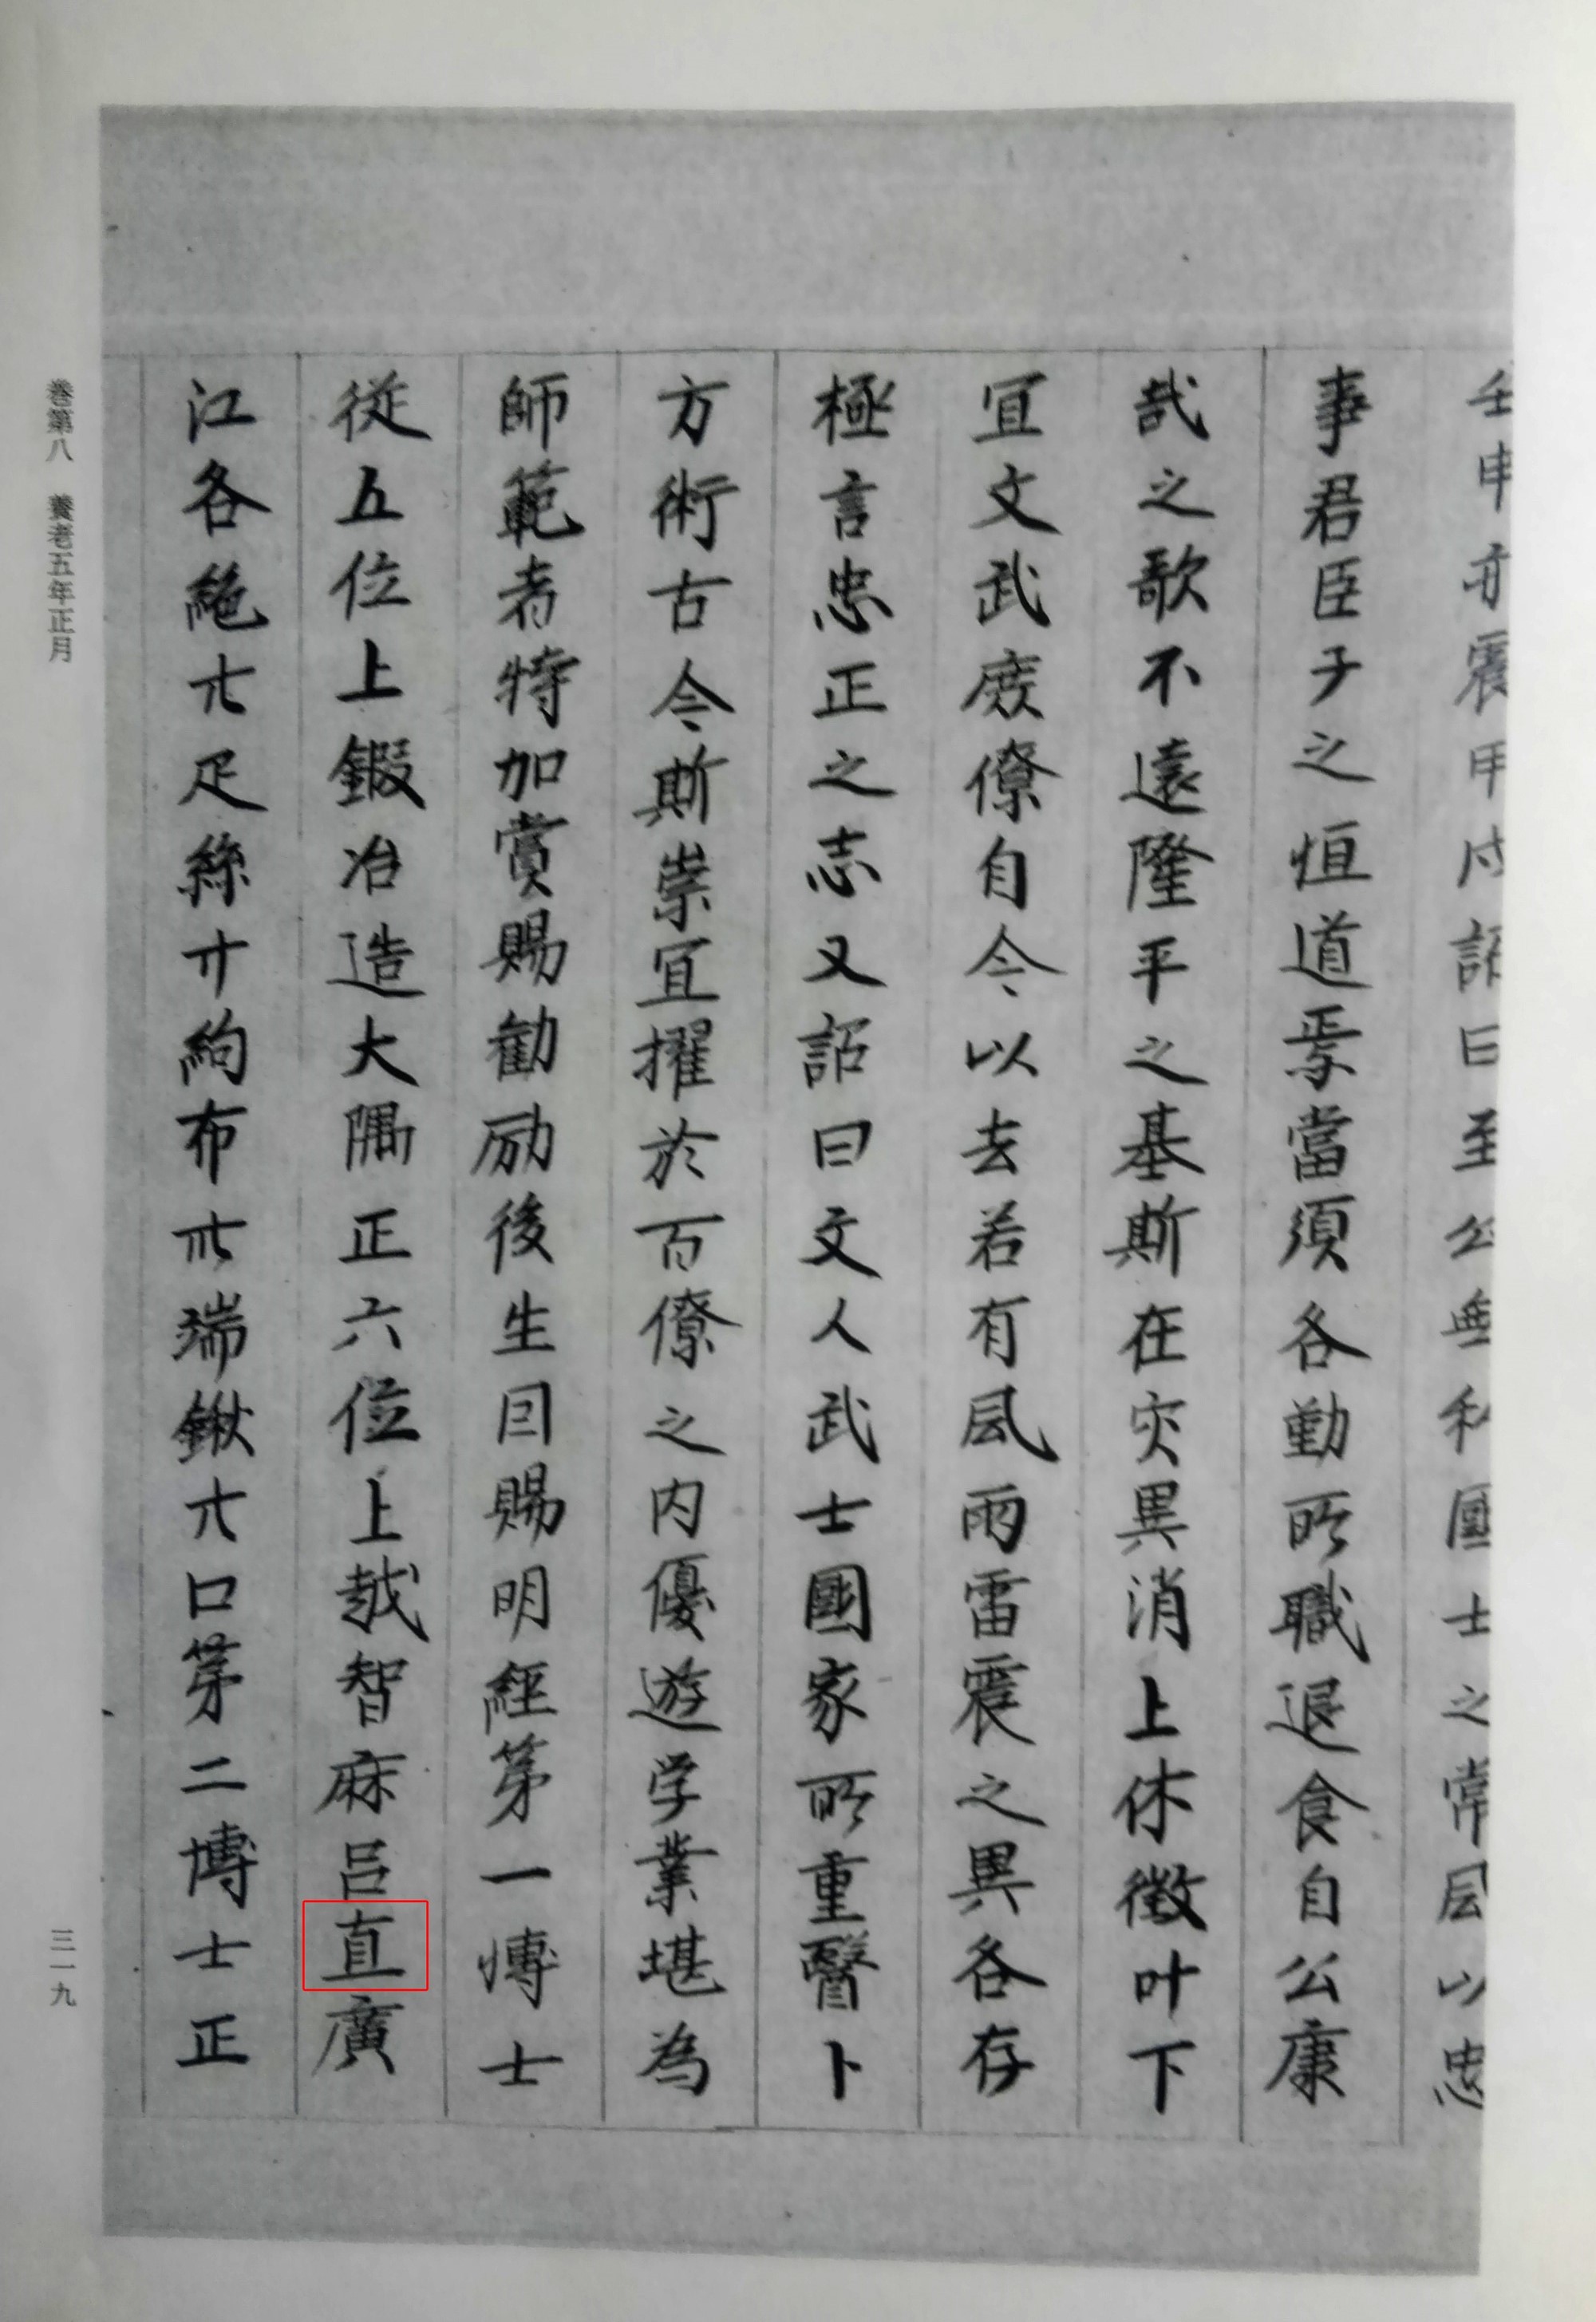 壬申亦震甲戌詔曰至公無私國士之常風以忠
事君臣子之恒道焉當須各勤所職退食自公康
哉之歌不遠隆平之基斯在灾異消上休徵叶下
冝文武庶僚自今以去若有風雨雷震之異各存
極言忠正之志又詔曰文人武士國家所重醫卜
方術古今斯崇冝擢於百僚之内優遊学業堪為
師範者特加賞賜勧励後生因賜明經苐一博士
従五位上鍜冶造大隅正六位上越智麻呂直廣
江各絁廿疋絲廿絇布卅端鍬廿口苐二博士正
巻第八 養老五年正月
三一九